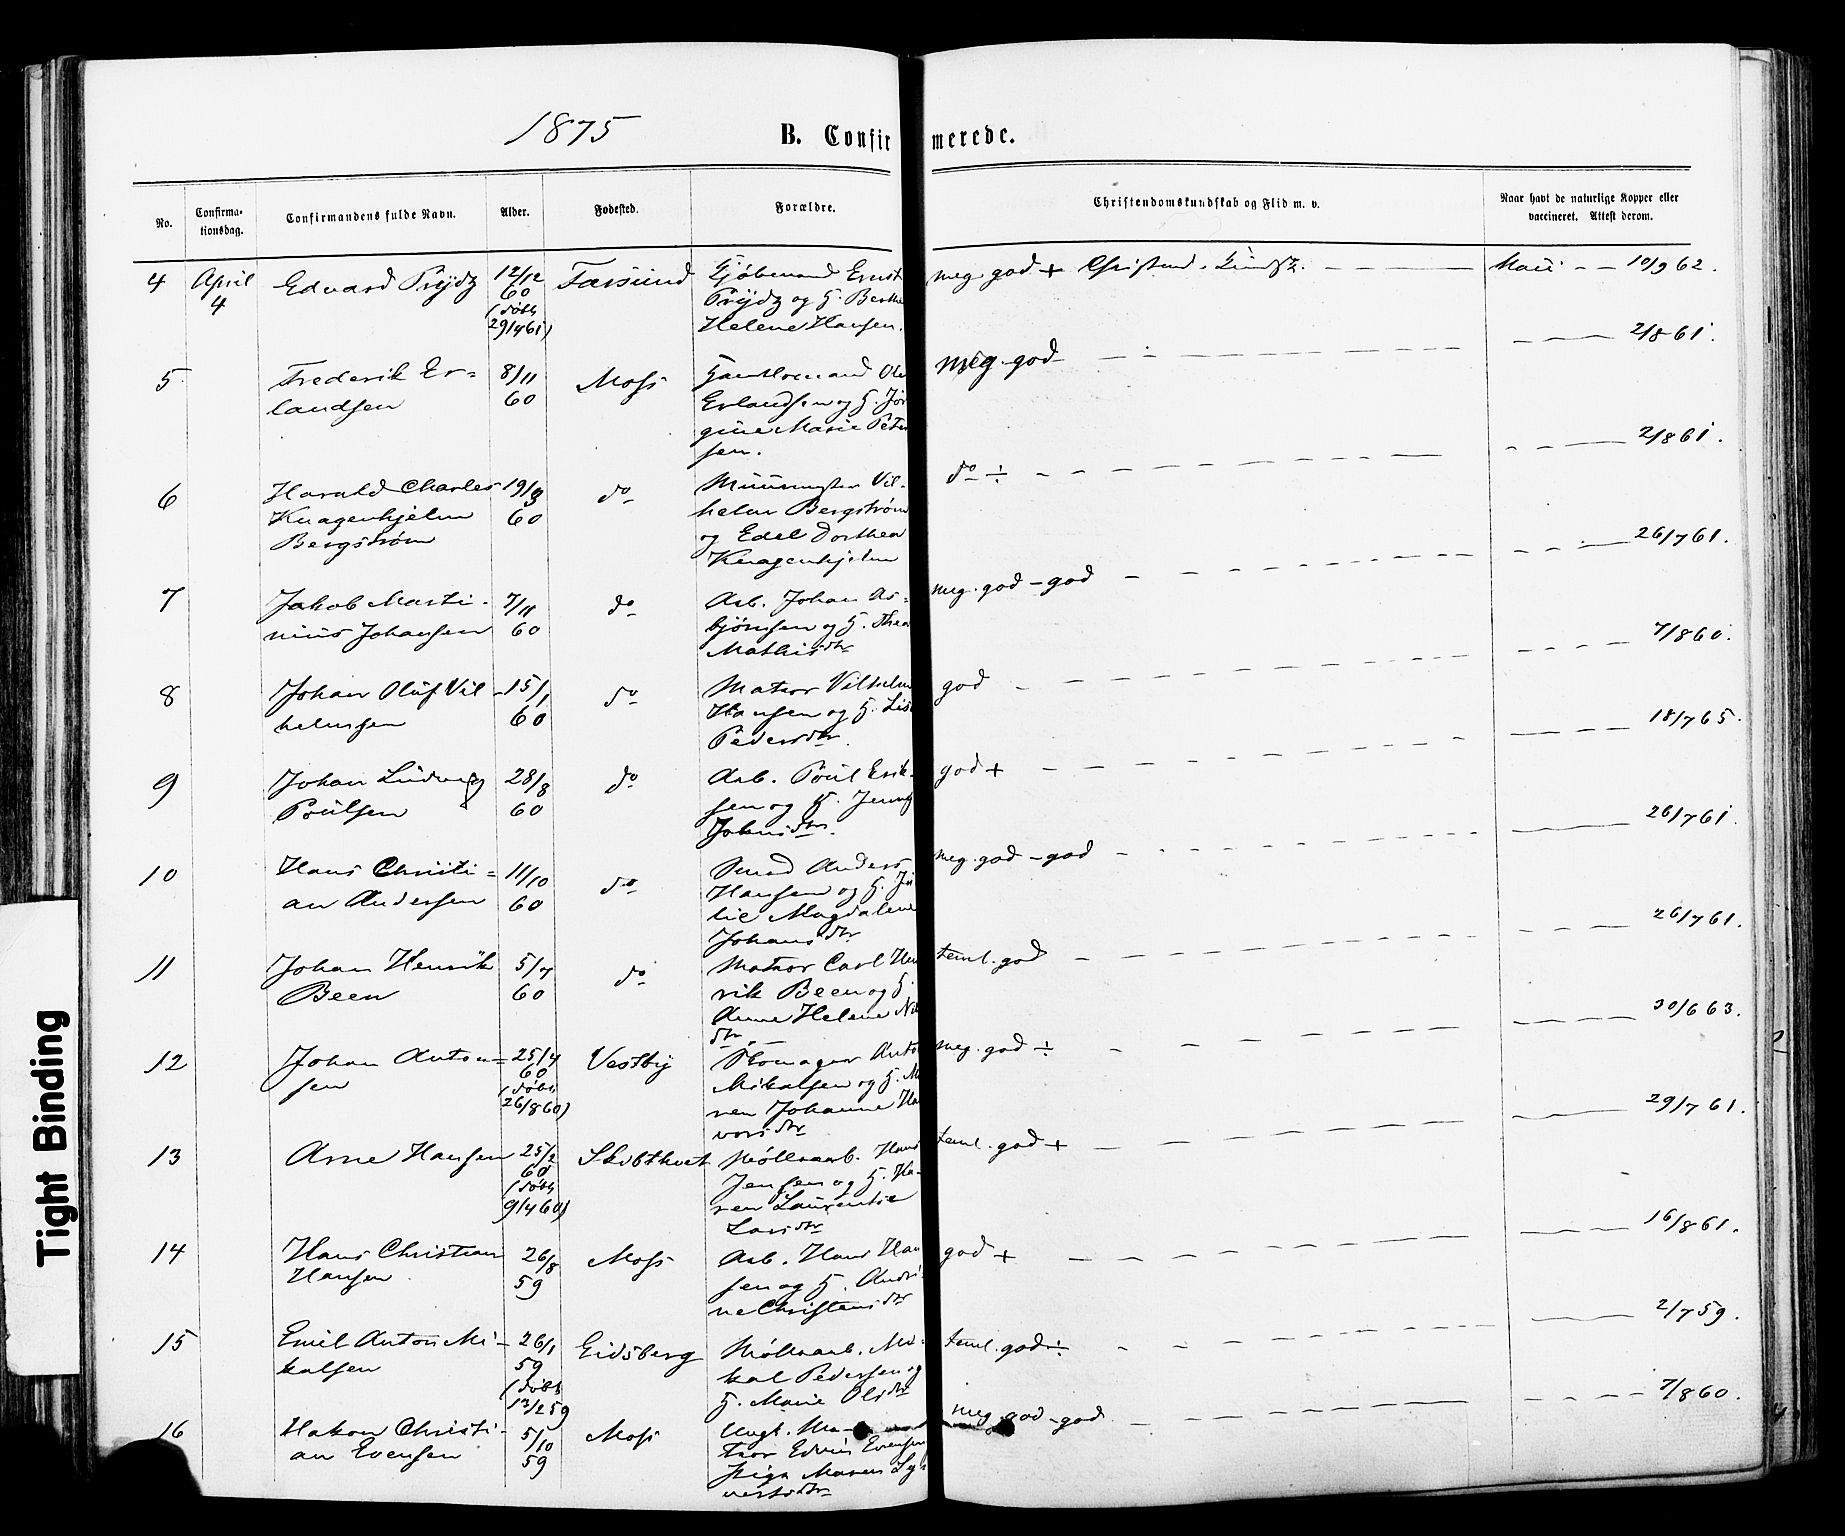 1875
B. Confirmerede.
No.
Confirma-
tionsdag.
Confirmandens fulde Navn.
Alder.
Fødested.
Forældre.
Christendomskundskab og Flid m. v.
Naar havt de naturlige Kopper eller
vaccineret. Attest derom.
4 April 4
Eduard Prydz
12/12
60
(døbt
29/4 61)
Farsund
Kjøbmand Ernst
Prydz og H. Berthe
Helene Hansen.
meg. god + Christend. Kundsk.
10/9 62.
5
Frederik Er=
landsen
8/11
60
Moss
Ole
Erlandsen og H. Jør
gine Marie Peter
sen.
meg. god
2/8 61.
6
Harald Charles
Knagenhjelm
Bergstrøm
19/3
60
do
Muurmester Vil-
helm Bergstrøm
og Edel Dorthea
Knagenhjelm
do ÷
2/8 61.
7
Jakob Marti-
nius Johansen
7/11
60
do
Arb. Johan As-
bjørnsen og H. Thea
Mathisdtr
meg. god - god
26/7 61.
8
Johan Oluf Vil-
helmsen
15/1
60
do
Matros Vilhelm
Hansen og H. Lise
Pedersdtr.
god
7/8 60.
9
Johan Ludvig
Poulsen
28/8
60
do
Arb. Poul Erik-
sen og H. Jenny
Johnsdtr.
god +
18/7 65.
10
Hans Christi=
an Andersen
11/10
60
do
Smed Anders
Hansen og H. Ju
lie Magdalene
Johansdtr
meg. god - god
26/7 61
11
Johan Henrik
Been
5/7
60
do
Matros Carl Hen
rik Been og H.
Anne Helene Nils
dtr.
teml. god
26/7 61.
12
Johan Anton=
sen
25/4
60
(døbt
26/8 60)
Vestby
Anton
Mikalsen og H. Ma
ren Johanne Ha
vorsdtr
meg. god ÷
30/6 63.
13
Arne Hansen
25/2
60
(døbt
9/4 60)
Skibthvet
Møllearb. Hans
Jensen og H. Ka-
ren Laurentie
Larsdtr
teml. god +
29/7 61.
14
Hans Christian
Hansen
26/8
59
Moss
Arb. Hans Han
sen og H. Andri
ne Christensdtr
god +
16/8 61.
15
Emil Anton Mi-
kalsen
26/1
59
(døbt
13/2 59
Eidsberg
Møllearb. Mi-
kal Pedersen og
H. Marie Olsdtr
teml. god ÷
2/7 59.
16
Hakon Christi-
an Evensen
5/10
59
Moss
Ungk. Ma-
tros Edvin Evensen
Pige Maren Syl
vestsdtr
meg. god - god
7/8 60.
Tight Binding